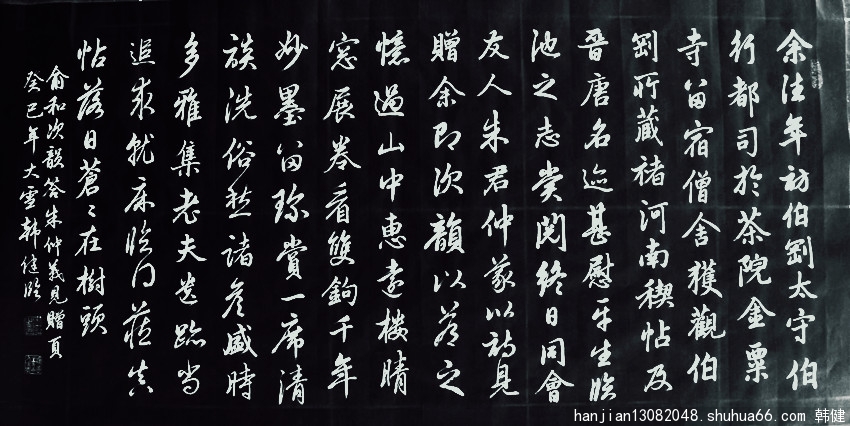 余往年訪伯剛太守伯
行都司於茶院金粟
寺留宿僧舍獲觀伯
剛所藏褚河南禊帖及
晉唐名迹甚慰平生臨
池之志赏閲終日同會
友人朱君仲義以詩見
贈余即次韻以答之
憶過山中惠遠樓晴
窓展卷看雙鉤千年
妙墨留珎賞一席清
談洗俗愁諸彦盛時
多雅集老夫陳迹尚
追求就床臨門
帖落日蒼〻在樹頭
俞和次韻答朱仲義見贈頁
癸巳年大雪韩健临
hanjian13082048.shuhua66.com 韩健